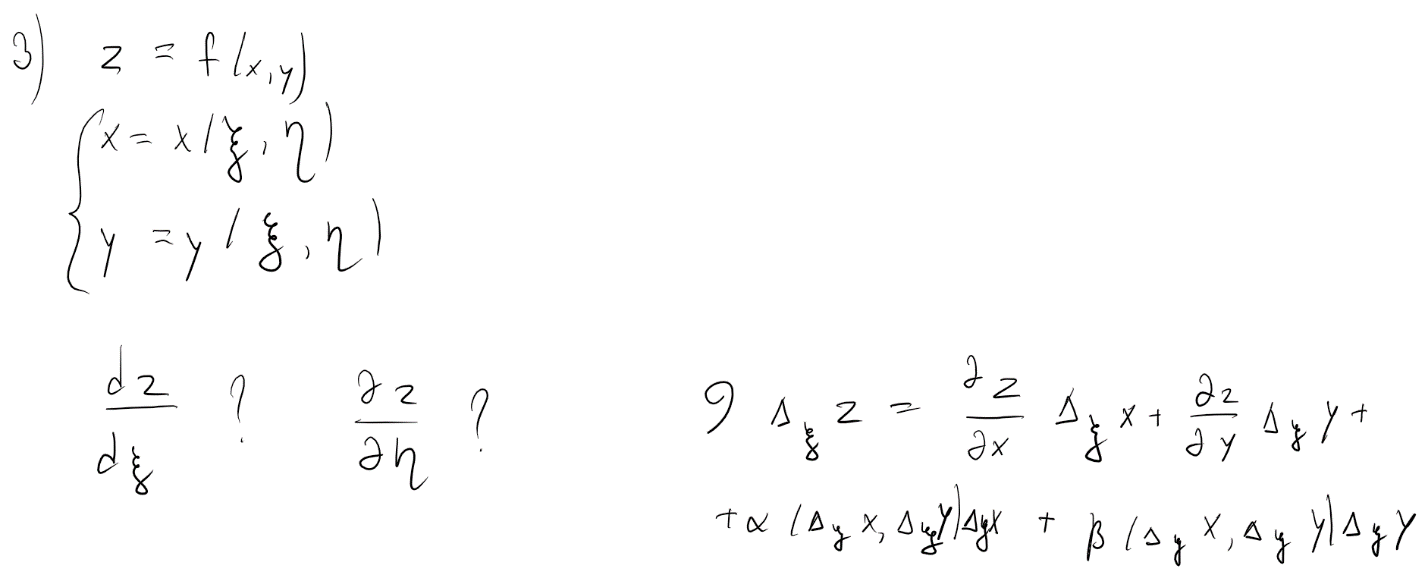 3) z = f(x,y)
{ x = x(ξ, η)
y = y(ξ, η)
dz/dξ ? ∂z/∂η ?
9 Δ_ξ z = ∂z/∂x Δ_ξ x + ∂z/∂y Δ_ξ y +
+ α (Δ_ξ x, Δ_ξ y) Δ_ξ x + β (Δ_ξ x, Δ_ξ y) Δ_ξ y